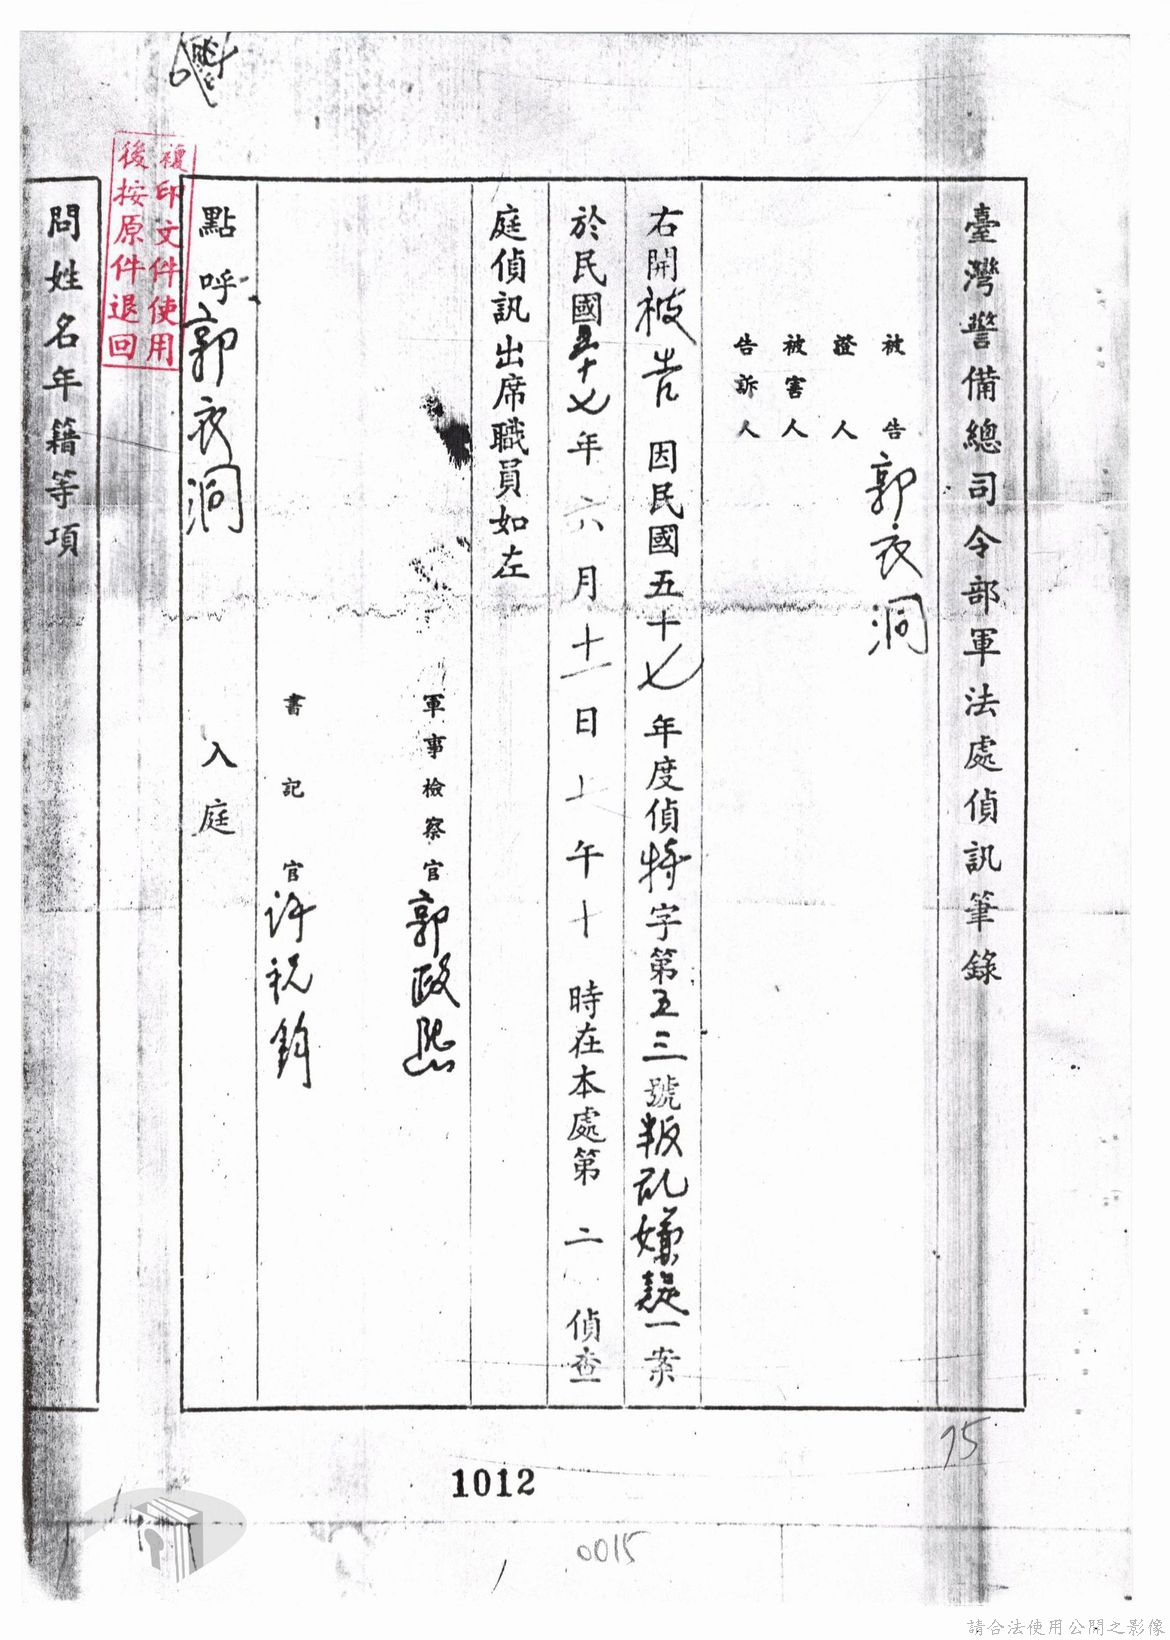 臺灣警備總司令部軍法處偵訊筆錄
被告郭衣洞
證人
被害人
告訴人
右開被告因民國五十七年度偵特字第五三號叛乱嫌疑一案
於民國五十七年六月十一日上午十時在本處第二偵查
庭偵訊出席職員如左
軍事檢察官郭政熙
書記官許祝鈞
點呼郭衣洞入庭
複印文件使用
後按原件退回
問姓名年籍等項
75
1012
0015
請合法使用公開之影像